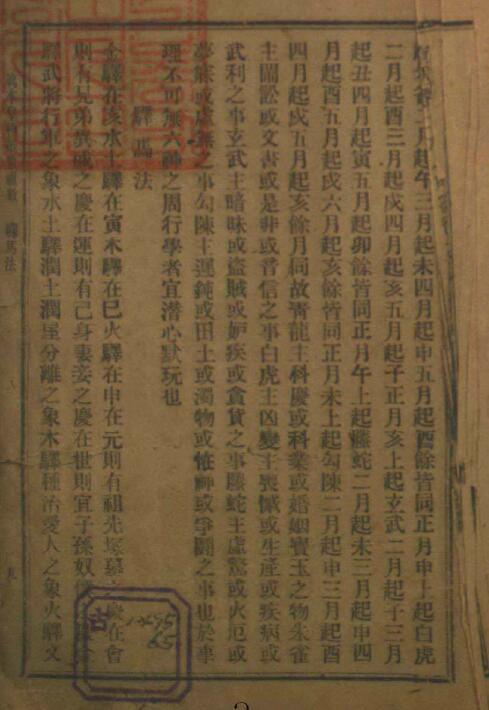 二月起午三月起未四月起申五月起酉餘皆同正月申上起白虎
二月起酉三月起戌四月起亥五月起子正月亥上起玄武二月起子三月
起丑四月起寅五月起卯餘皆同正月午上起螣蛇二月起未三月起申四
月起酉五月起戌六月起亥餘皆同正月未上起勾陳二月起申三月起酉
四月起戌五月起亥餘月同故靑龍主科慶或科業或婚姻寶玉之物朱雀
主鬪訟或文書或是非或音信之事白虎主凶變主喪慽或生產或疾病或
武利之事玄武主暗昧或盜賊或妒疾或貪貨之事螣蛇主虛驚或火厄或
夢熊或虛無之事勾陳主遲鈍或田土或濁物或怪神或爭鬪之事也於事
理不可無六神之周行學者宜潛心默玩也
驛馬法
金驛在亥水土驛在寅木驛在巳火驛在申在元則有祖先塚墓之慶在會
則有兄弟異戚之慶在運則有己身妻妾之慶在世則宜子孫奴
驛武將行軍之象水土驛潤土潤屋分離之象木驛種治愛人之象火驛文
驛馬法
古
1275
65